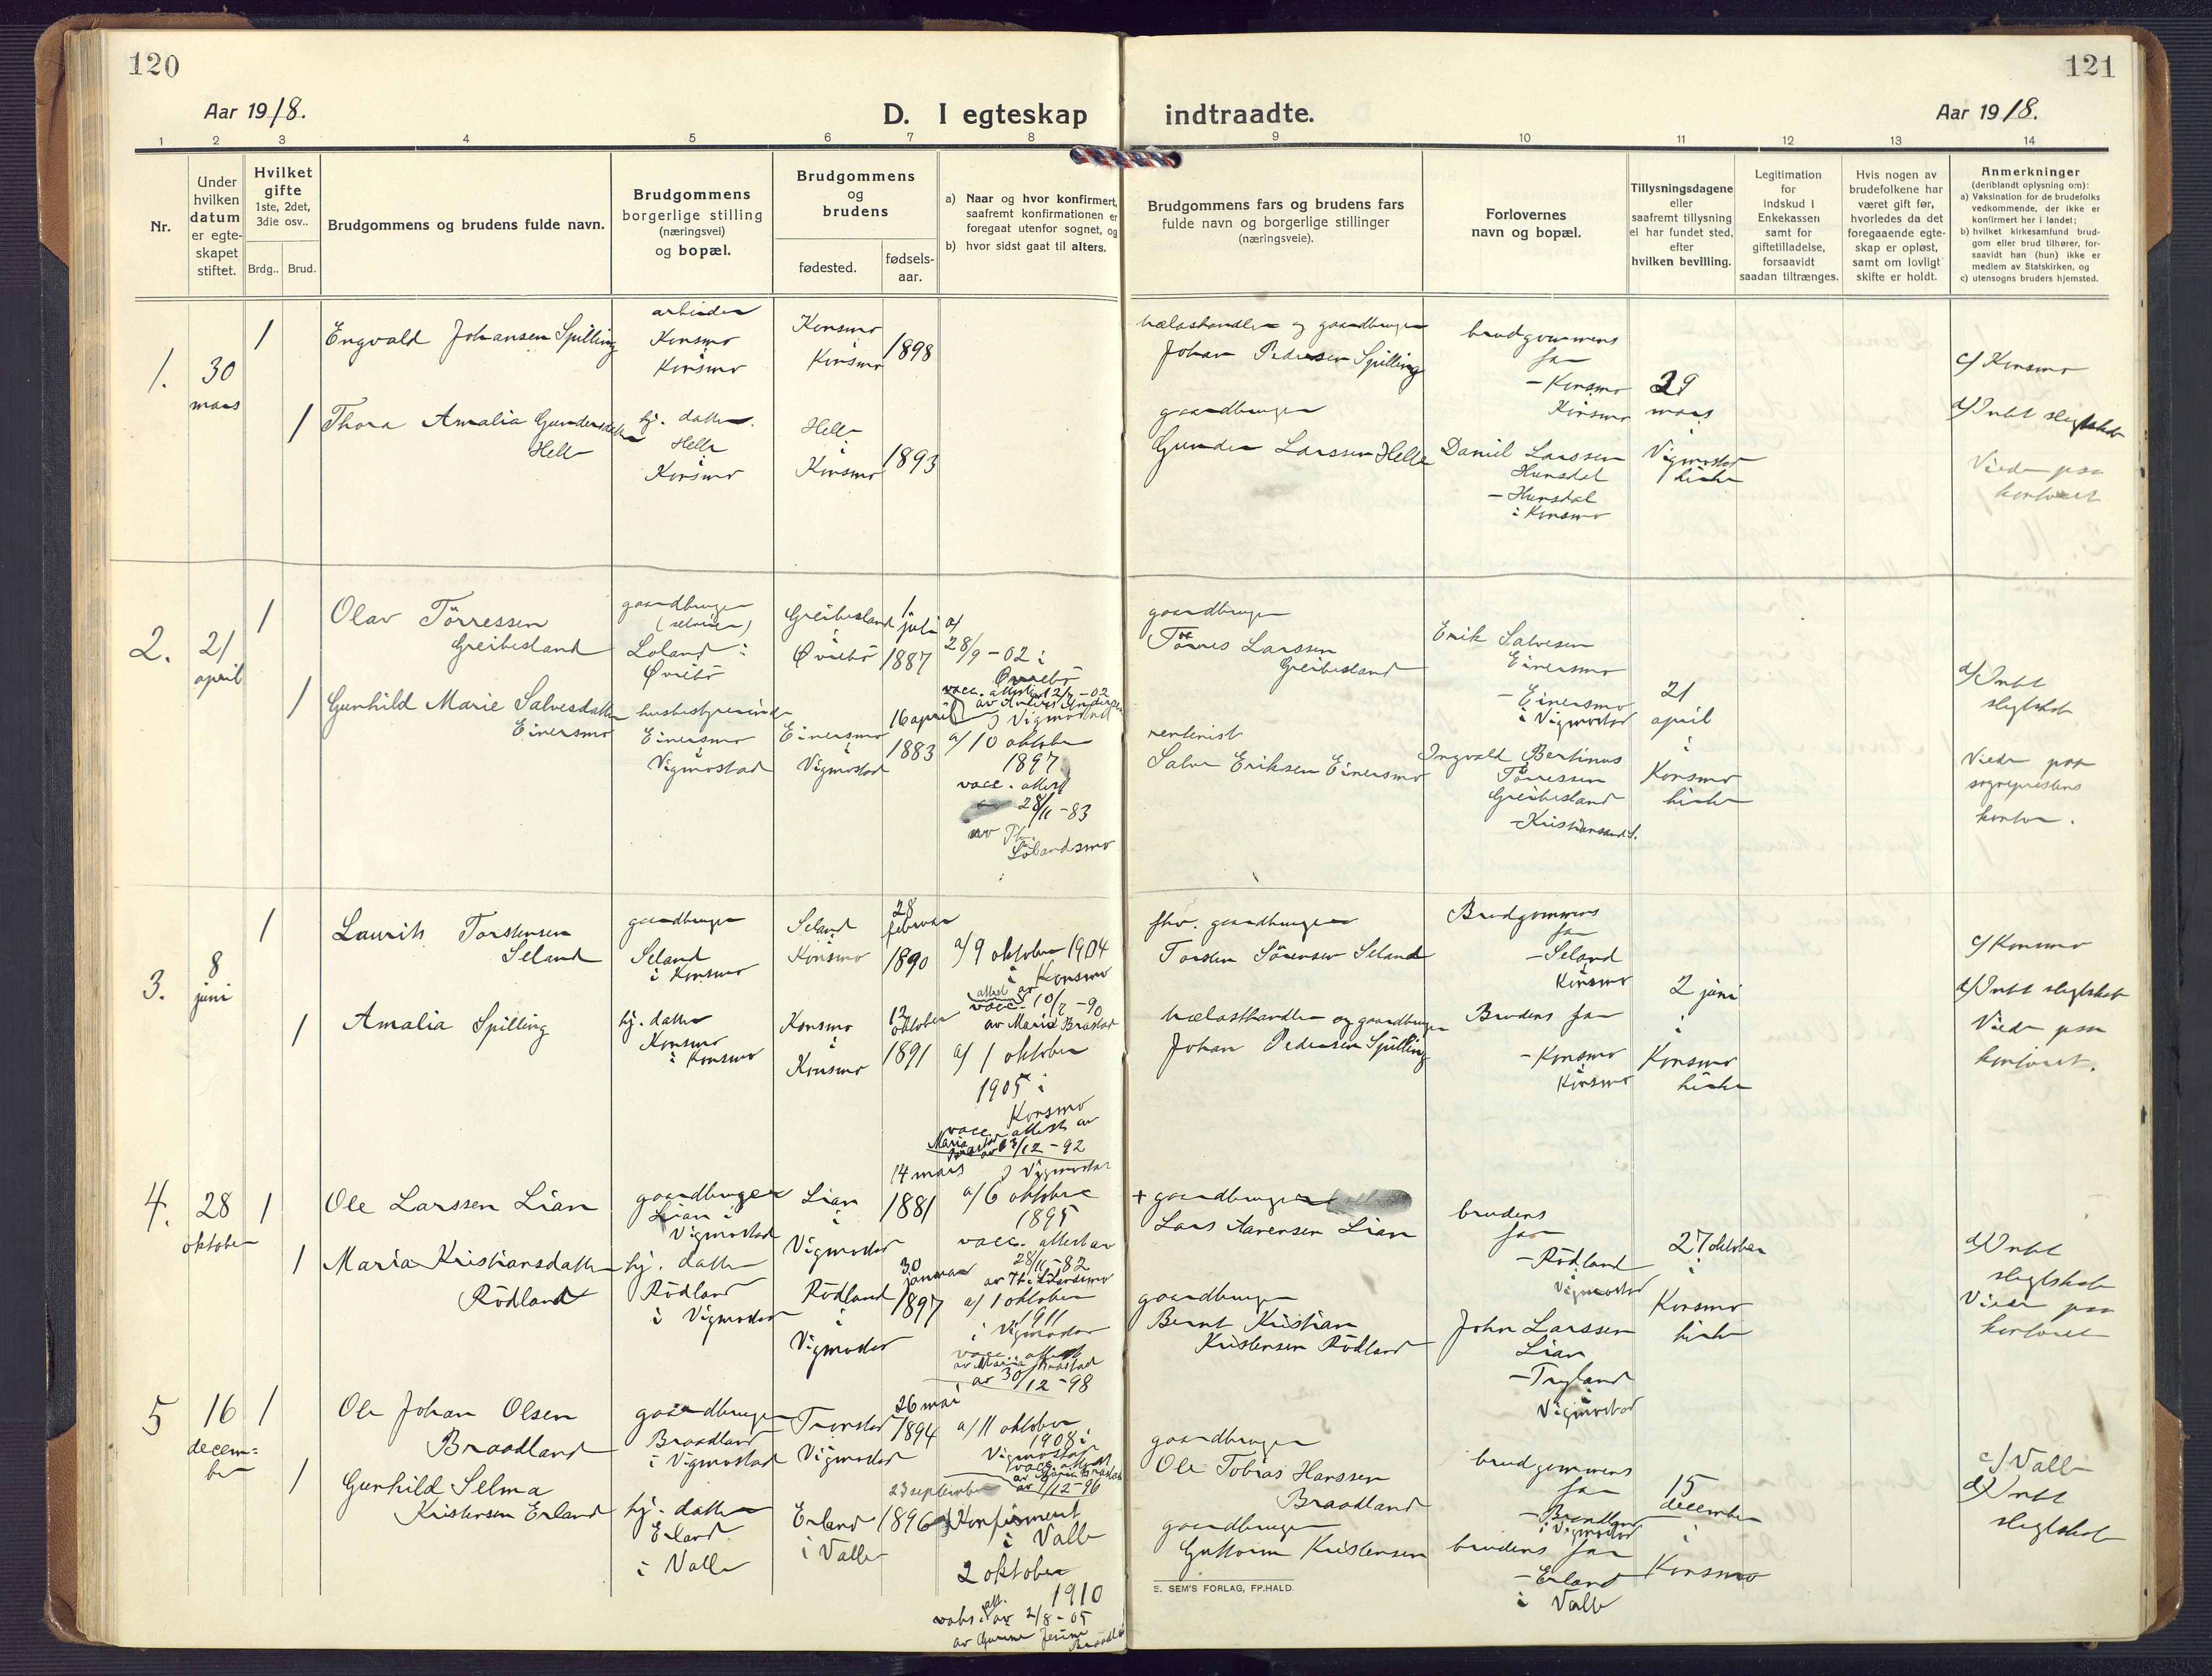 120
121
Aar 1918.
D. I egteskap indtraadte.
Aar 1918.
1 2 3 4 5 6 7 8 9 10 11 12 13 14
Nr.
Under
hvilken
datum
er egte-
skapet
stiftet.
Hvilket
gifte
1ste, 2det,
3die osv..
Brdg.. Brud.
Brudgommens og brudens fulde navn.
Brudgommens
borgerlige stilling
(næringsvei)
og bopæl.
Brudgommens
og
brudens
fødested.
fødsels-
aar.
a) Naar og hvor konfirmert,
saafremt konfirmationen er
foregaat utenfor sognet, og
b) hvor sidst gaat til alters.
Brudgommens fars og brudens fars
fulde navn og borgerlige stillinger
(næringsveie).
Forlovernes
navn og bopæl.
Tillysningsdagene
eller
saafremt tillysning
ei har fundet sted,
efter
hvilken bevilling.
Legitimation
for
indskud i
Enkekassen
samt for
giftetilladelse,
forsaavidt
saadan tiltrænges.
Hvis nogen av
brudefolkene har
været gift før,
hvorledes da det
foregaaende egte-
skap er opløst,
samt om lovligt
skifte er holdt.
Anmerkninger
(deriblandt oplysning om):
a) Vaksination for de brudefolks
vedkommende, der ikke er
konfirmert her i landet;
b) hvilket kirkesamfund brud-
gom eller brud tilhører, for-
saavidt han (hun) ikke er
medlem av Statskirken, og
c) utensogns bruders hjemsted.
1.
30
mars
1
Engvald Johansen Spilling
arbeider
Konsmo
i
Konsmo
Konsmo
i
Konsmo
1898
trælasthandler og gaardbruger
Johan Pedersen Spilling
brudgommens
far
- Konsmo
i
Konsmo
29
mars
i
Vigmostad
kirke
c/ Konsmo
d/ Intet slegtskab
Viede paa
kontoret
1
Thora Amalia Gundersdatter
Helle
hj. datter.
Helle
i
Konsmo
Helle
i
Konsmo
1893
gaardbruger
Gunder Larssen Helle
Daniel Larssen
Hunsdal
- Hunsdal
i Konsmo
2.
21
april
1
Olav Törressen
Greibesland
gaardbruger
(selveier)
Loland i
Øvrebö
Greibesland
i
Øvrebö
1
juli
1887
a/
28/9 - 02 i
Øvrebö
gaardbruger
Törres Larssen
Greibesland
Erik Salvesen
Einersmo
- Einersmo
i Vigmostad
21
april
i
Konsmo
kirke
d/ Intet
slegtskab
Viede paa
sogneprestens
kontor.
1
Gunhild Marie Salvesdatter
Einersmo
husbestyrerinde
Einersmo
i
Vigmostad
Einersmo
i
Vigmostad
16 april
1883
I Vigmostad
a/ 10 oktober
1897
vacc. attest
28/11 - 83
av Th.
Lölandsmo
rentenist
Salve Eriksen Einersmo
Ingvald Bertinus
Törressen
Greibesland
- Kristiansand S.
3.
8
juni
1
Laurits Torstensen
Seland
gaardbruger
Seland
i Konsmo
Seland
i
Konsmo
28
februar
1890
a/ 9 oktober 1904
i Konsmo
attest av
vacc. 10/7 - 90
av Maria Brastad
fhv. gaardbruger
Torsten Sörensen Seland
Brudgommens
far
- Seland
i
Konsmo
2 juni
i
Konsmo
kirke
c/ Konsmo
d/ Intet slegtskab
Viede paa
kontoret.
1
Amalia Spilling
hj. datter
Konsmo
i Konsmo
Konsmo
i
Konsmo
12
oktober
1891
a/ 1 oktober
1905 i
Konsmo
vacc. attest av
Maria
Brastad av 13/12 - 92
trælasthandler og gaardbruger
Johan Pedersen Spilling
Brudens far
- Konsmo
i
Konsmo
4.
28
oktober
1
Ole Larssen Lian
gaardbruger
Lian i
Vigmostad
Lian
i
Vigmostad
14 mars
1881
I Vigmostad
a/ 6 oktober
1895
vacc. attest av
28/11 - 82
av Th. Lölandsmo
+ gaardbruger
Lars Aanensen Lian
brudens
far
- Rödland
i
Vigmostad
27 oktober
i
Konsmo
kirke
d/ Intet
slegtskab
Viede paa
kontoret
1
Maria Kristiansdatter
Rödland
hj. datter
Rödland
i Vigmostad
Rödland
i
Vigmostad
30
januar
1897
a/ 1 oktober
1911
i Vigmostad
vacc. attest
av Maria Brastad
av 30/12 - 98
gaardbruger
Bernt Kristian
Kristensen Rödland
John Larssen
Lian
- Trygland
i
Vigmostad
5
16
decem=
ber
1
Ole Johan Olsen
Braadland
gaardbruger
Braadland
i Vigmostad
Tronstad
i
Vigmostad
26 mai
1894
a/ 11 oktober
1908 i
Vigmostad
vacc. attest
av Maria Brastad
av 9/12 - 96
gaardbruger
Ole Tobias Hanssen
Braadland
brudgommens
far
- Braadland
i Vigmostad
15
december
i
Konsmo
c/ Valle
d/ Intet
slegtskab
1
Gunhild Selma
Kristensen Erland
hj. datter
Erland
i Valle
Erland
i Valle
23 september
1896
Konfirmert
i Valle
2 oktober
1910
att.
vaks. av 2/8 - 05
av Gurine Jesine
Braadland
gaardbruger
Guttorm Kristensen
brudens far
- Erland
i Valle
E. SEM'S FORLAG, FP.HALD.